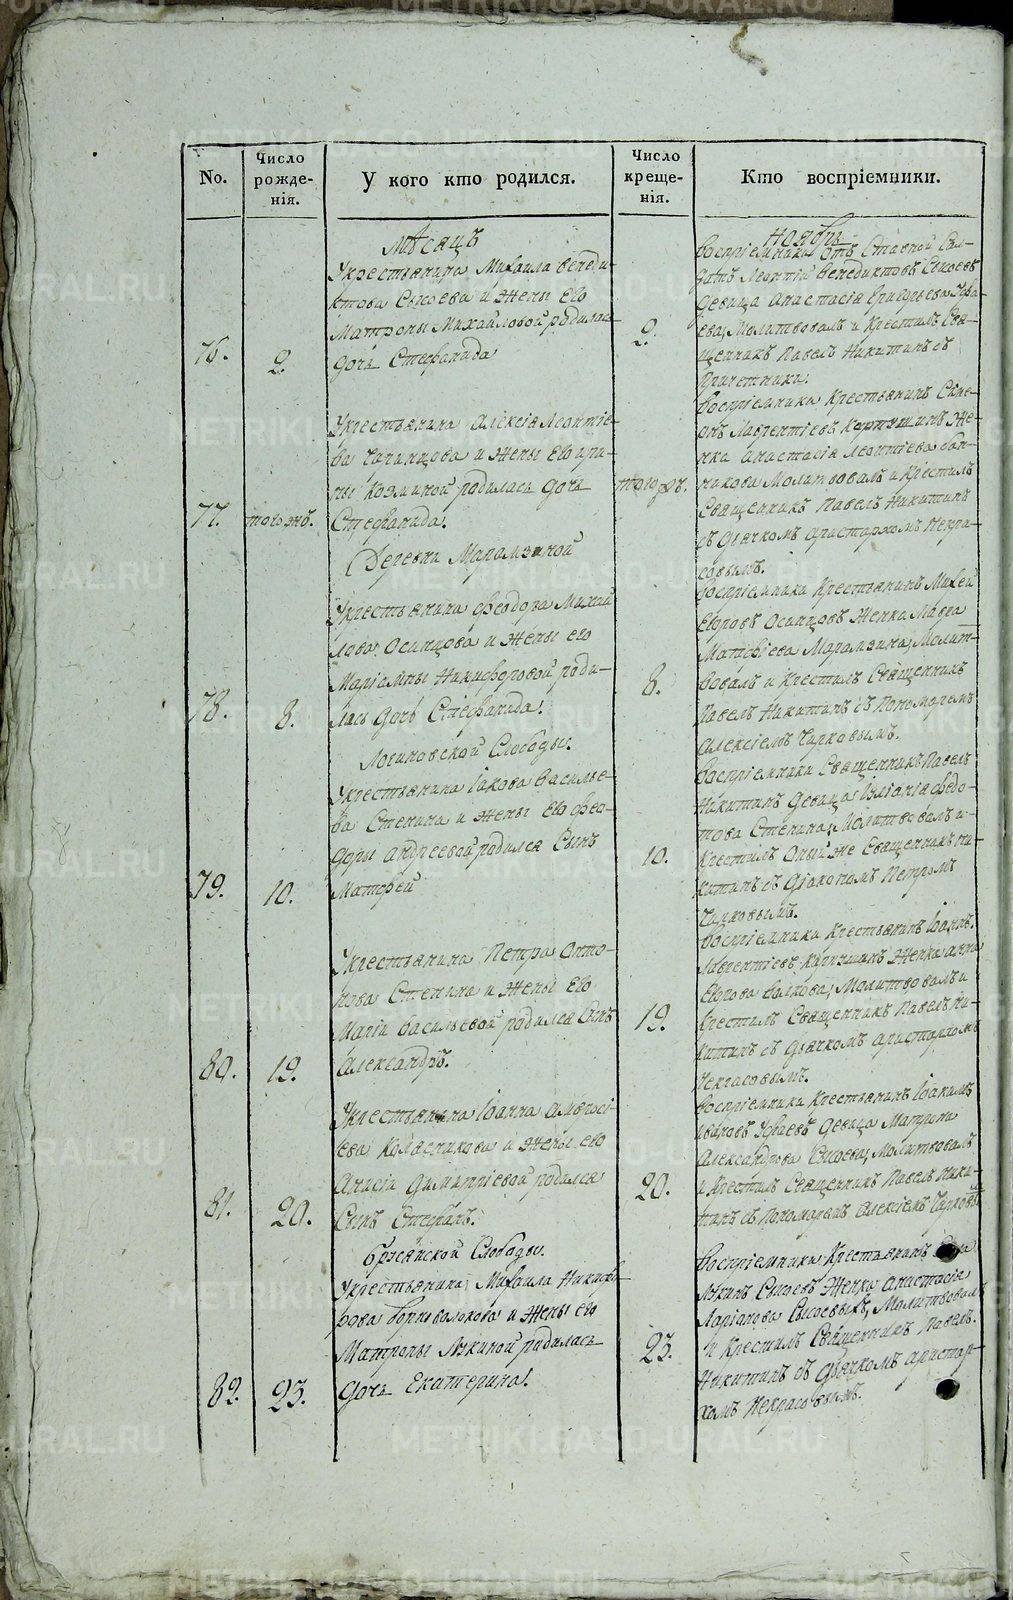 No.
Число рожде-нія.
У кого кто родился.
Число креще-нія.
Кто воспріемники.
Мѣсяцъ
Ноябрь
76.
2.
У крестьянина Михаила Венеди-
ктова Сысоева и жены его
Матроны Михайловой родилась
дочь Стефанида
2.
Воспріемники отъ ставной Сол-
датъ Леонтій Венедиктовъ Сысоевъ
девица Анастасія Григорьева
ева, Молитвовалъ и Крестилъ Свя-
щенникъ Павелъ Никитинъ съ
Причетники:
77.
того жъ.
У крестьянина Алексія Леонтіе-
ва и жены его Ири-
ны Козминой родилась дочь
Стефанида.
того жъ.
Воспріемники крестьянинъ Симе-
онъ Лаврентіевъ Же-
нка Анастасія Леонтіева
Молитвовалъ и Крестилъ
Священникъ Павелъ Никитинъ
съ дьячкомъ Аристархомъ Некра-
совымъ.
Деревни Марамзиной
78.
8.
У крестьянина Феодора Михай
лова Осинцова и жены его
Маріемны Никифоровой роди-
лась дочь Стефанида.
8.
Воспріемники крестьянинъ Михей
Егоровъ Осинцовъ Женка Мавра
Матвѣева Марамзина, Молит-
вовалъ и Крестилъ Священникъ
Павелъ Никитинъ съ Пономаремъ
Алексіемъ Чирковымъ.
Логиновской Слободы.
79.
10.
У крестьянина Іакова Василье-
ва Стенина и жены его Фео-
доры Андреевой родился Сынъ
Матфей
10.
Воспріемники Священникъ Павелъ
Никитинъ девица Іуліанія Федо-
това Стенина, Молитвовалъ и
Крестилъ оный же Священникъ Ни-
китинъ съ діакономъ Петромъ
Чирковымъ.
80.
19.
У крестьянина Петра Анто-
нова Стенина и жены его
Маріи Васильевой родился Сынъ
Александръ.
19.
Воспріемники крестьянинъ Іоаннъ
Лаврентіевъ Женка Анна
Егорова Волкова; Молитвовалъ и
Крестилъ Священникъ Павелъ Ни-
китинъ съ дьячкомъ Аристархомъ
Некрасовымъ.
81.
20.
У крестьянина Іоанна Амвросі-
ева Колясникова и жены его
Анисіи Димитріевой родился
Сынъ Стефанъ.
20.
Воспріемники крестьянинъ Іоакимъ
девица
Александрова Сысоева, Молитвовалъ
и Крестилъ Священникъ Павелъ Ники-
тинъ съ Пономаремъ Алексіемъ Чирковы
Слободы.
82.
23.
У крестьянина Михаила Никифо-
рова и жены его
Матроны Лукиной родилась
дочь Екатерина.
23.
Воспріемники крестьянинъ
Лукинъ Сысоевъ Женка Анастасія
Ларіонова Сысоевыхъ, Молитвовалъ
и Крестилъ Священникъ Павелъ
Никитинъ съ дьячкомъ Аристар-
хомъ Некрасовымъ.
METRIKI.GASO-URAL.RU